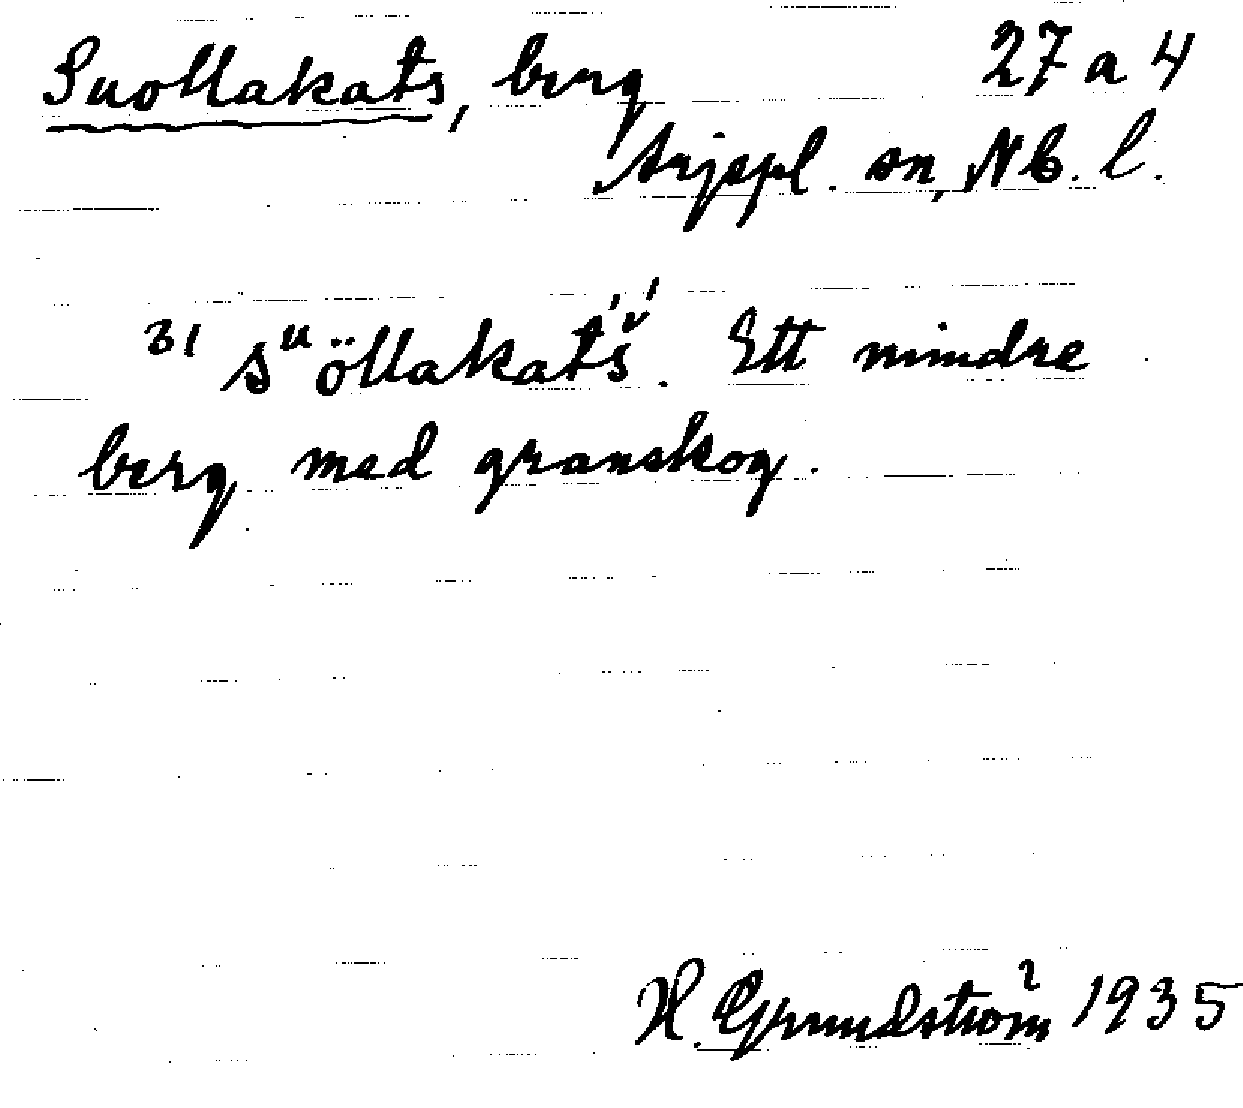 Suollakats, berg 27 a 4
Arjepl. sn, Nb. l.
31 sᵘöllakat́š́. Ett mindre
berg med granskog.
H. Grundström 1935